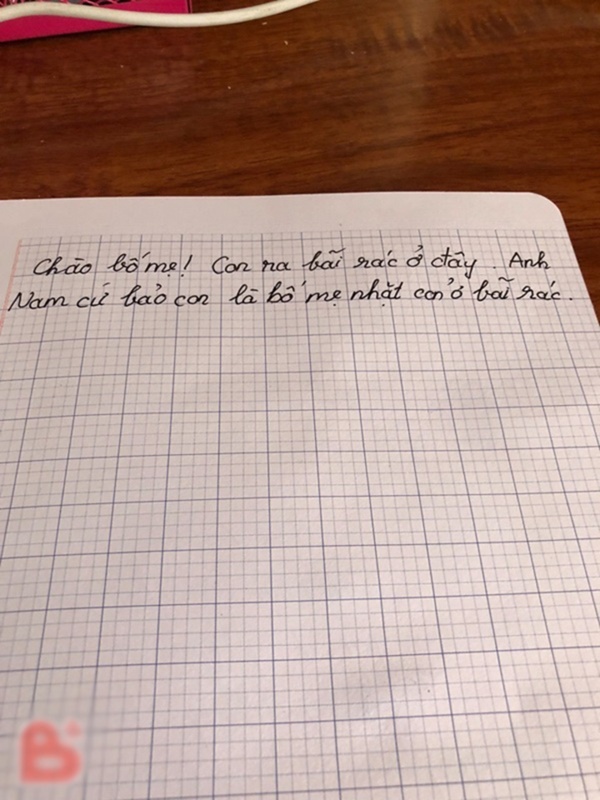 Chào bố mẹ! Con ra bãi rác ở đây. Anh
Nam cứ bảo con là bố mẹ nhặt con ở bãi rác.